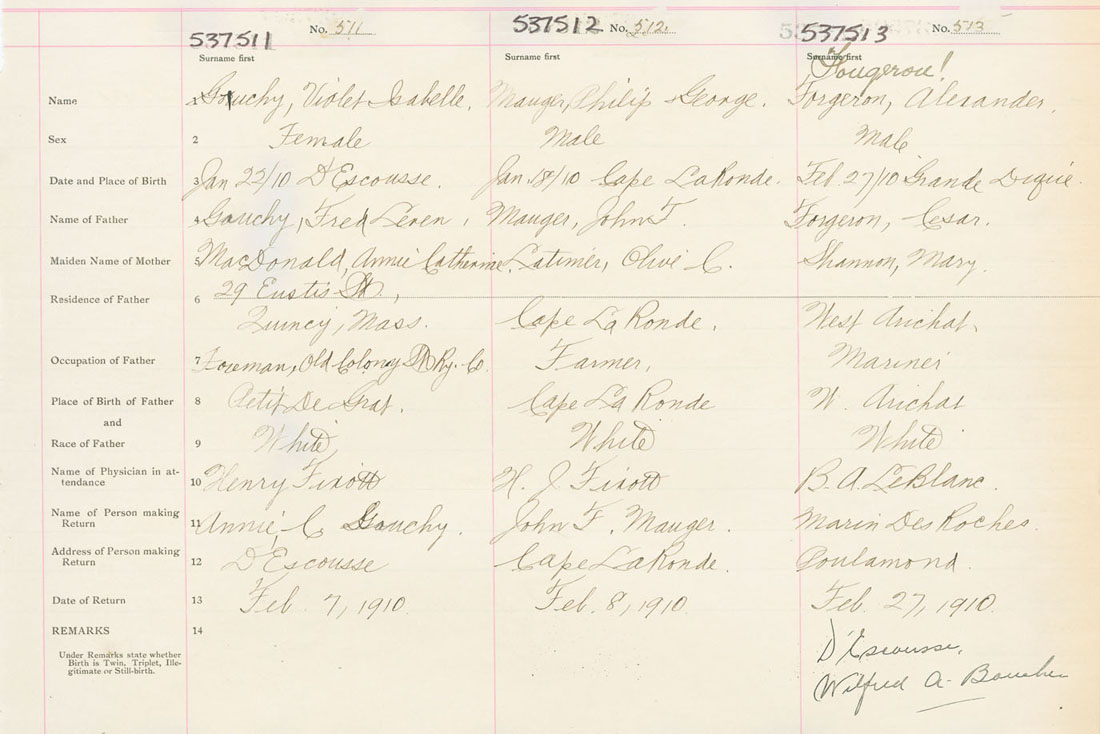 No. 511 No. 512. No. 513
537511 537512 537513
Surname first Surname first Surname first
Fougerou!
Name 1 Gouchy, Violet Isabelle. Mauger, Philip George. Forgeron, Alexander.
Sex 2 Female Male Male
Date and Place of Birth 3 Jan 22/10 D'Escousse. Jan. 18/10 Cape LaRonde. Feb. 27/10 Grande Digue.
Name of Father 4 Gouchy, Fred Leven, Mauger, John F. Forgeron, Cesar.
Maiden Name of Mother 5 MacDonald, Annie Catherine. Latimer, Olive C. Shannon, Mary.
Residence of Father 6 29 Eustis St.,
Quincy, Mass. Cape La Ronde. West Arichat.
Occupation of Father 7 Foreman, Old Colony St Ry. Co. Farmer. Mariner
Place of Birth of Father 8 Petit De Grat. Cape La Ronde W. Arichat
and
Race of Father 9 White White White
Name of Physician in at-
tendance 10 Henry Fixott H. J. Fixott B. A. LeBlanc.
Name of Person making
Return 11 Annie C. Gouchy. John F. Mauger. Marin DesRoches.
Address of Person making
Return 12 D'Escousse Cape LaRonde. Poulamond.
Date of Return 13 Feb. 7, 1910. Feb. 8, 1910. Feb. 27, 1910.
REMARKS 14
Under Remarks state whether
Birth is Twin, Triplet, Ille-
gitimate or Still-birth.
D'Escousse.
Wilfred A. Boucher